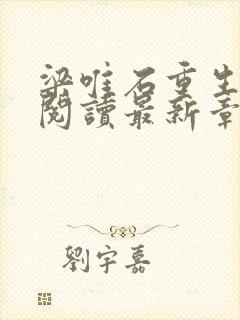 梁唯石重生
閱讀最新章
劉宇嘉